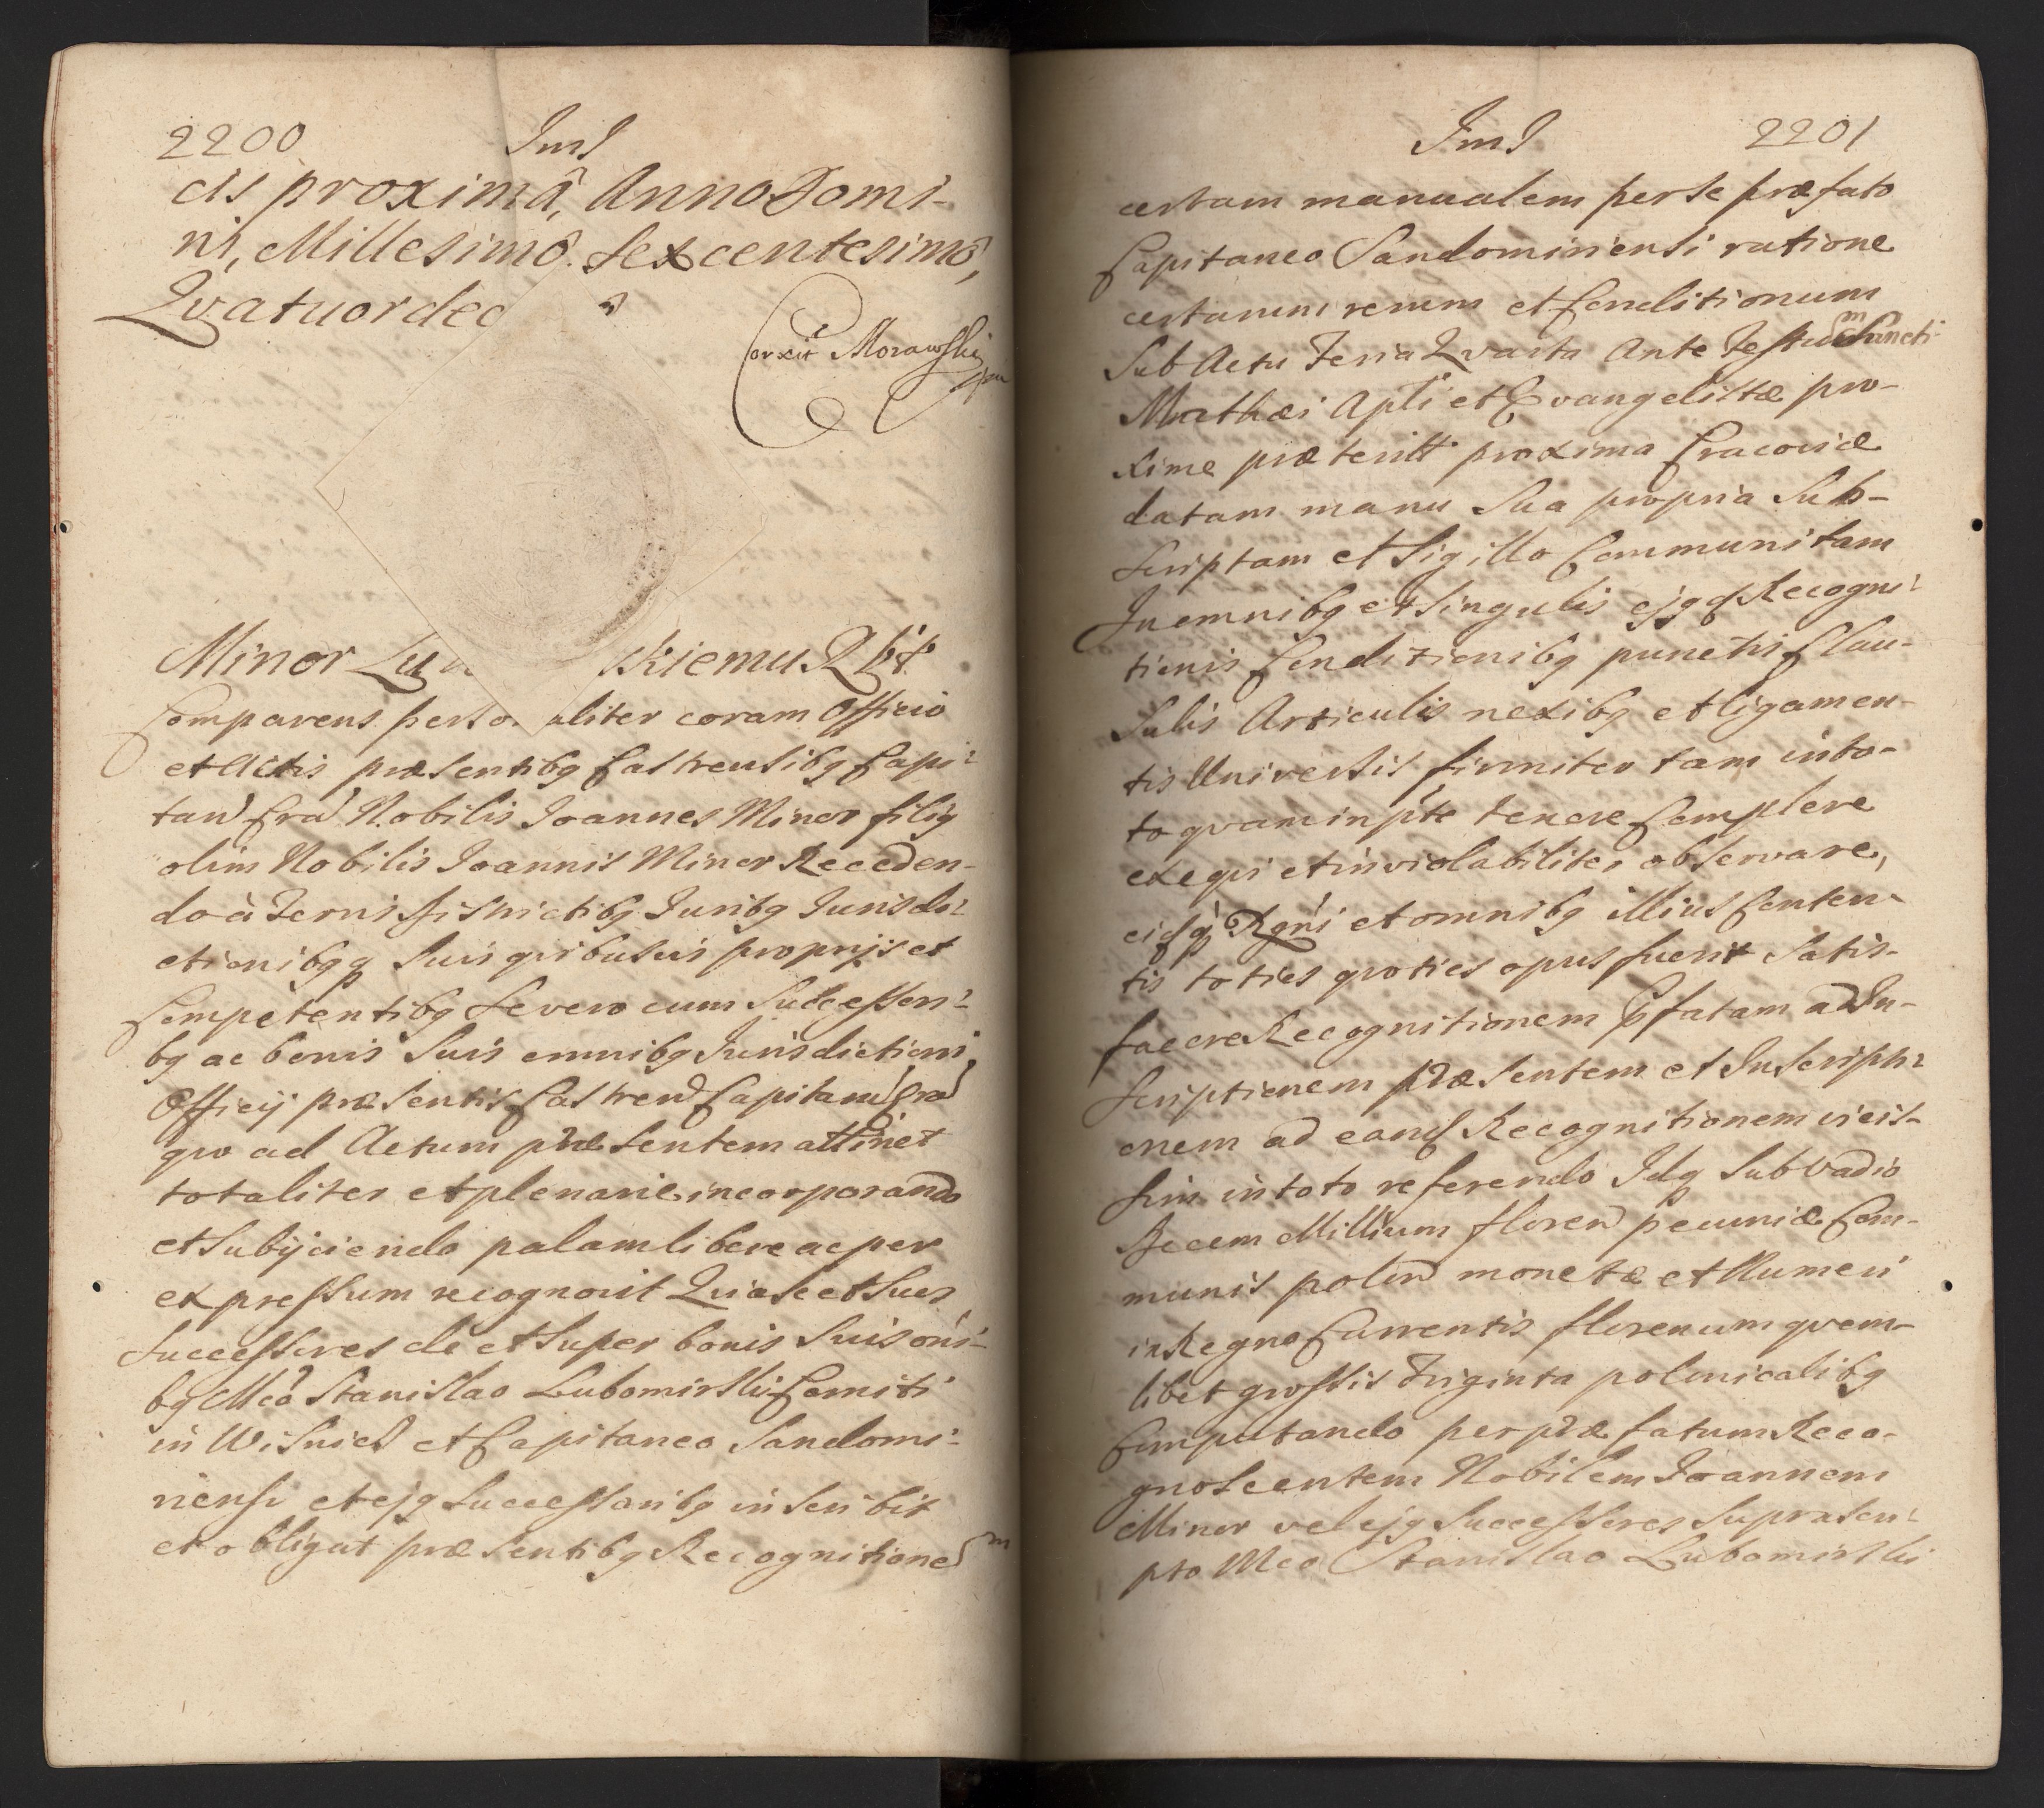 2200 Ims
cis proximâ, Anno Domi-
ni, Millesimô. Sexcentesimô,
Qvatuordec
Corxit Morawski
Minor Lu skiemu
Comparens perso aliter coram Officio
et Actis præsentibq Castrensibq Capi-
tan Cra Nobilis Joannes Minor filiq
olim Nobilis Joannis Minor Receden-
do à Terris Districtibq Juribq Jurisdi-
ctionibqq Suis qvibusvis proprijs et
Competentibq Se vero cum Successori-
bq ac bonis Suis omnibq Jurisdictioni
Officij præsentis Castren Capitan Cra
qvo ad Actum præsentem attinet
totaliter et plenarie incorporando
et Subijciendo palam libere ac per
expressum recognovit Qvia Se et Suos
Successores de et Super bonis Suis oni-
bq Mco Stanislao Lubomirski Comiti
in Wisnicz et Capitaneo Sandomi-
riensi et ejq Successoribq inscribit
et obligat præsentibq Recognitione
Ims 2201
certam manualem per Se præfato
Capitaneo Sandomiriensi ratione
certarum rerum et Conditionum
Sub Actu Feria Qvarta Ante Festum Sancti
Mathæi Apli et Evangelistæ pro-
xime præteriti proxima Cracoviæ
datam manu Sua propria Sub-
scriptam et Sigillo Communitam
In omnibq et Singulis ejqd Recogni-
tionis Conditionibq punctis Clau-
Sulis Articulis nexibq et ligamen-
tis Universis firmiter tam in to-
to qvam in pte tenere Complere
exeqvi et inviolabiliter observare,
eidq Rgni et omnibq illius Conten-
tis toties qvoties opus fuerit Satis-
facere Recognitionem pfatam ad In-
scriptionem præsentem et Inscripti-
onem ad eand Recognitionem vicis-
sim in toto referendo Idq Sub Vadio
Decem Millium floren pecuniæ Com-
munis polon monetæ et Numeri
in Regno Currentis florenum qvem-
libet grossis Triginta polonicalibq
Computando per præfatum Reco-
gnoscentem Nobilem Joannem
Minor vel ejq Successores Suprascri-
pto Mco Stanislao Lubomirski